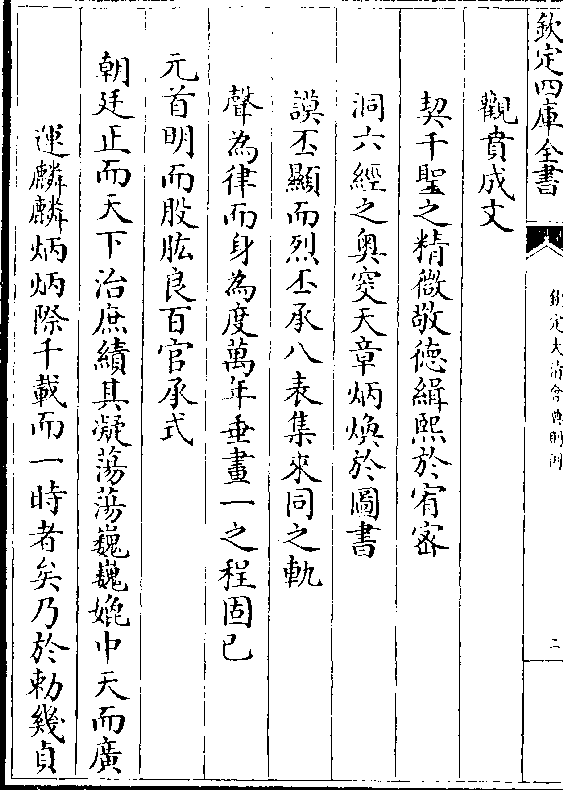 欽定四庫全書
欽定大清會典則例
二
觀賁成文
契千聖之精微敬德緝熙於宥密
洞六經之奥窔天章炳煥於圖書
謨丕顯而烈丕承八表集來同之軌
聲為律而身為度萬年垂畫一之程固已
元首明而股肱良百官承式
朝廷正而天下治庶績其凝蕩蕩巍巍媲中天而廣
運麟麟炳炳際千載而一時者矣乃於勅幾貞